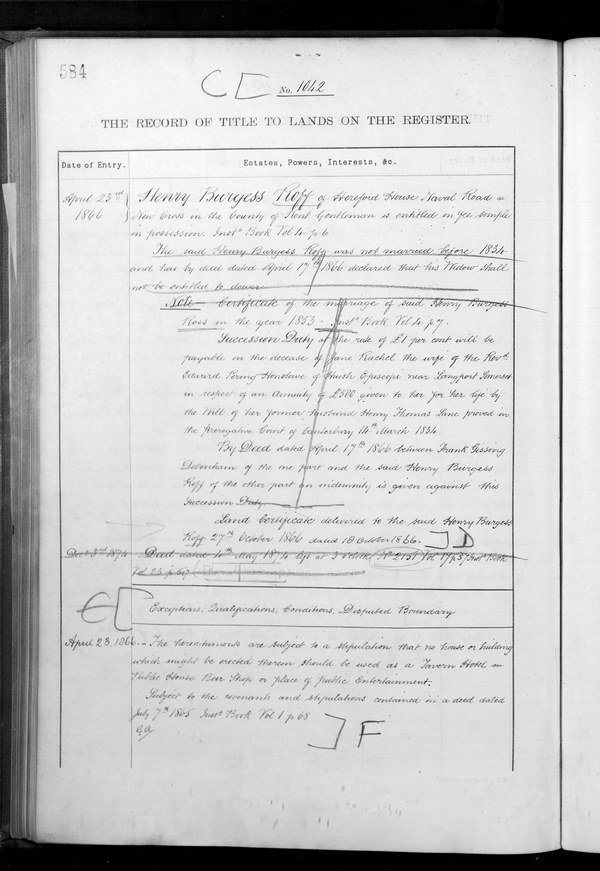 584
C [ No. 1042
THE RECORD OF TITLE TO LANDS ON THE REGISTER.
Date of Entry. Estates, Powers, Interests, &c.
April 23rd 1866 Henry Burgess Roff of Hereford House Naval Road
New Cross in the County of Kent Gentleman is entitled in fee simple
in possession. Inst. Book Vol 4 p 6
The said Henry Burgess Roff was not married before 1834
and has by deed dated April 17th 1866 declared that his Widow shall
not be entitled to dower
Note Certificate of the marriage of said Henry Burgess
Ross in the year 1853 - Inst. Book Vol 4 p 7.
Succession Duty at the rate of £1 per cent will be
payable on the decease of Jane Rachel the wife of the Revd.
Edward Pering Henslowe of Huish Episcopi near Langport Somerset
in respect of an Annuity of £500 given to her for her life by
the Will of her former husband Henry Thomas Lane proved in
the Prerogative Court of Canterbury 14th March 1834.
By Deed dated April 17th 1866 between Frank Gissing
Debenham of the one part and the said Henry Burgess
Roff of the other part an indemnity is given against this
Succession Duty
Land Certificate delivered to the said Henry Burgess
Roff 27th October 1866 dated 18 October 1866. ] D
Decr 3rd 1874 Deed dated 4th May 1874 left at 3 oClock Vol 17 p 37 Inst. Book
Vol 23 p
E [ Exceptions, Qualifications, Conditions, Disputed Boundary
April 23. 1866. - The hereditaments are subject to a stipulation that no house or building
which might be erected thereon should be used as a Tavern Hotel Inn
Public House Beer Shop or place of public Entertainment.
Subject to the covenants and stipulations contained in a deed dated
July 7th 1865 Inst. Book Vol 1 p 68
] F